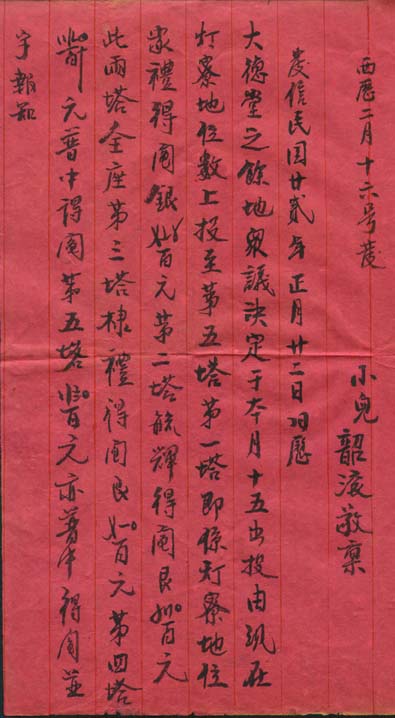 西曆二月十六号發
小兒韶渡敬稟
發信民国廿貳年正月廿二日旧曆
大德堂之餘地眾議決定于本月十五出投由現在
灯寮地位數上投至第五塔第一塔即係灯寮地位
家禮得阄銀百元第二塔毓輝得阄艮百元
此兩塔全座第三塔棣禮得阄艮百元第四塔
元普中得阄第五塔百元亦普中得阄並
字報知